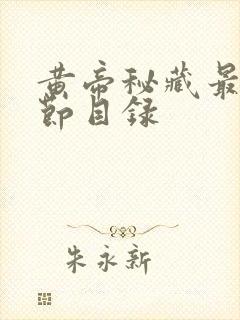 黄帝秘藏最
节目录
朱永新